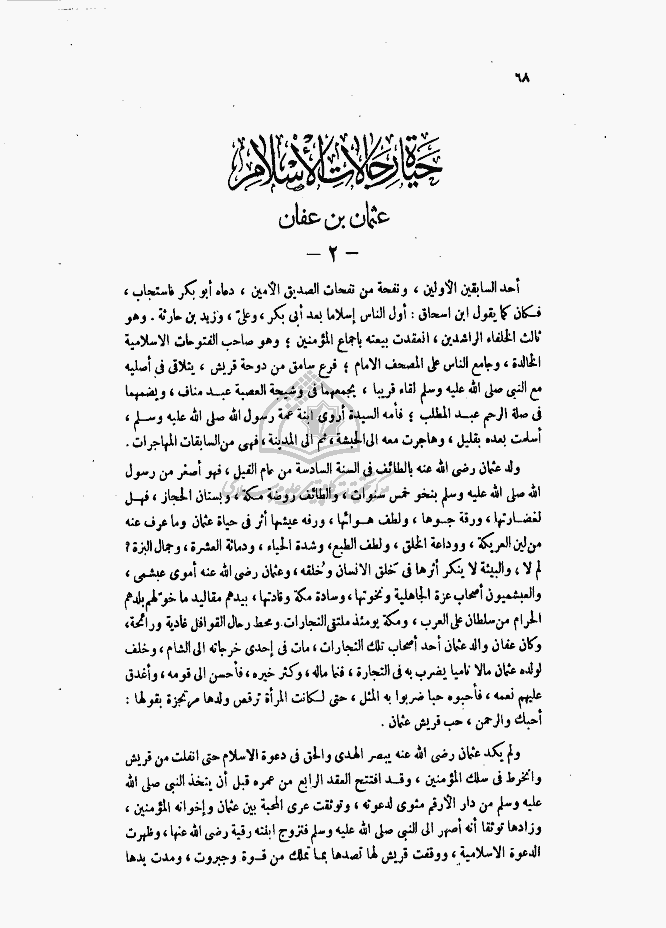 ٦٨
حياة رجالات الإسلام
عثمان بن عفان
— ٢ —
أحد السابقين الأولين ، ونفحة من نفحات الصديق الأمين ، دعاه أبو بكر فاستجاب ،
فكان كما يقول ابن اسحاق : أول الناس إسلاما بعد أبى بكر ، وعلىّ ، وزيد بن حارثة . وهو
ثالث الخلفاء الراشدين ، انعقدت بيعته باجماع المؤمنين ؛ وهو صاحب الفتوحات الاسلامية
الخالدة ، وجامع الناس على المصحف الامام ؛ فرع سامق من دوحة قريش ، يتلاقى فى أصليه
مع النبي صلى الله عليه وسلم لقاء قريبا ، يجمعهما فى وشيجة العصبة عبد مناف ، ويضمهما
فى صلة الرحم عبد المطلب ؛ فأمه السيدة أروى ابنة عمة رسول الله صلى الله عليه وسلم ،
أسلمت بعده بقليل ، وهاجرت معه الى الحبشة ، ثم الى المدينة ، فهى من السابقات المهاجرات .
ولد عثمان رضى الله عنه بالطائف فى السنة السادسة من عام الفيل ، فهو أصغر من رسول
الله صلى الله عليه وسلم بنحو خمس سنوات ، والطائف روضة مكة ، وبستان الحجاز ، فهل
لغضارتها ، ورقة جوها ، ولطف هوائها ، ورفه عيشها أثر فى حياة عثمان وما عرف عنه
من لين العريكة ، ووداعة الخلق ، ولطف الطبع ، وشدة الحياء ، ودماثة العشرة ، وجمال البزة ؟
لم لا ، والبيئة لا ينكر أثرها فى خلق الانسان وخُلقه ، وعثمان رضى الله عنه أموى عبشمى ،
والعبشميون أصحاب عزة الجاهلية ونخوتها ، وسادة مكة وقادتها ، بيدهم مقاليد ما خوّلهم بلدهم
الحرام من سلطان على العرب ، ومكة يومئذ ملتقى التجارات. ومحط رحال القوافل غادية ورائحة،
وكان عفان والد عثمان أحد أصحاب تلك التجارات ، مات فى إحدى خرجاته الى الشام ، وخلف
لولده عثمان مالا ناميا يضرب به فى التجارة ، فنما ماله ، وكثر خيره ، فأحسن الى قومه ، وأغدق
عليهم نعمه ، فأحبوه حبا ضربوا به المثل ، حتى لكانت المرأة ترقص ولدها مرتجزة بقولها :
أحبك والرحمن ، حب قريش عثمان .
ولم يكد عثمان رضى الله عنه يبصر الهدى والحق فى دعوة الاسلام حتى انفلت من قريش
وانخرط فى سلك المؤمنين ، وقد افتتح العقد الرابع من عمره قبل أن يتخذ النبى صلى الله
عليه وسلم من دار الأرقم مثوى لدعوته ، وتوثقت عرى المحبة بين عثمان وإخوانه المؤمنين ،
وزادها توثقا أنه أصهر الى النبى صلى الله عليه وسلم فتزوج ابنته رقية رضى الله عنها ، وظهرت
الدعوة الاسلامية ، ووقفت قريش لها تصدها بما تملك من قوة وجبروت ، ومدت يدها